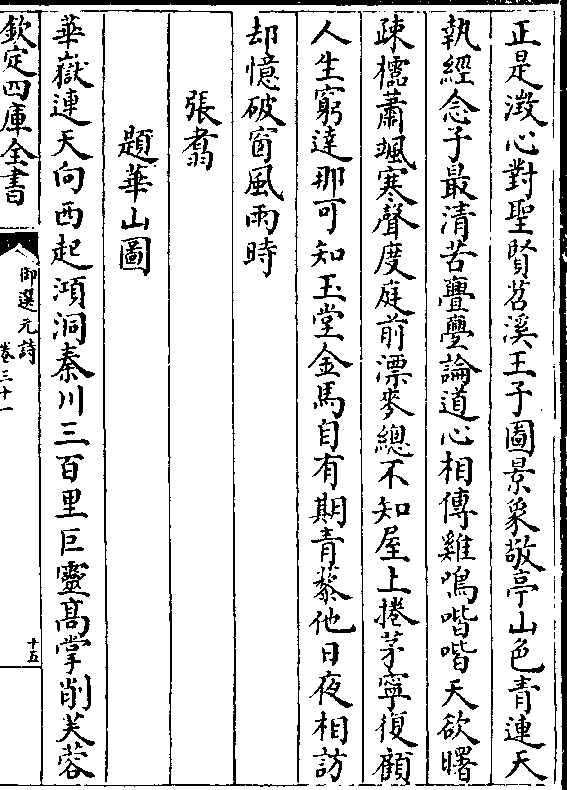 正是澂心對聖賢苕溪王子圖景象敬亭山色青連天
執經念子最清苦亹亹論道心相傳雞鳴喈喈天欲曙
疎櫺蕭颯寒聲度庭前漂麥總不知屋上捲茅寧復顧
人生窮達那可知玉堂金馬自有期青藜他日夜相訪
却憶破窗風雨時
張翥
題華山圖
華嶽連天向西起澒洞秦川三百里巨靈高掌削芙蓉
欽定四庫全書
御選元詩
卷三十一
十五